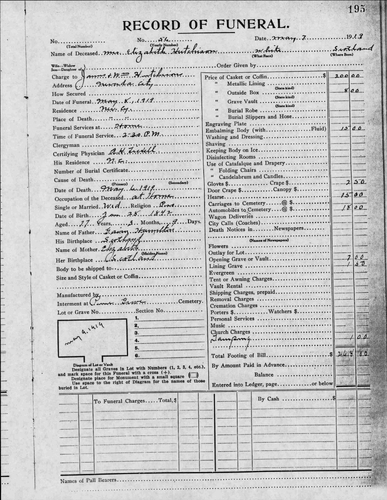 195
RECORD OF FUNERAL.
No. No. 52 Date, May 7 1913
(Total Number) (Yearly Number)
Name of Deceased, Mrs. Elizabeth Hutchison White Scotland
(What Race) (Where Born)
Charge to James & Wm Hutchison Order Given by
Address City
How Secured
Date of Funeral May 8, 1919
Place of Death
Funeral Services at Home
Time of Funeral Service 2:30 P.M.
Clergyman
Certifying Physician
His Residence
Number of Burial Certificate
Cause of Death
Date of Death May 6, 1919
Occupation of the Deceased at Home
Single or Married Wid Religion
Date of Birth Jan 28
Aged 77 Years 3 Months Days
Name of Father Hamilton
His Birthplace Scotland
Name of Mother Elizabeth
Her Birthplace Scotland
Body to be shipped to
Size and Style of Casket or Coffin
Manufactured by
Interment at Cemetery.
Lot or Grave No. Section No.
May 8, 1919
Diagram of Lot or Vault
Designate all Graves in Lot with Numbers (1, 2, 3, 4, etc.),
and mark space for this Funeral with a cross (+)
Designate place for Monument with a small square
Use space to the right of Diagram for the names of those
buried in Lot.
Price of Casket or Coffin $ 200 00
" Metallic Lining
" Outside Box 8 00
" Grave Vault
" Burial Robe
" Burial Slippers and Hose
Engraving Plate
Embalming Body (with Fluid) 15 00
Washing and Dressing
Shaving
Keeping Body on Ice
Disinfecting Rooms
Use of Catafalque and Drapery
" Folding Chairs
" Candelabrum and Candles
Gloves $ Crape $ 2 50
Door Crape $ Canopy $
Hearse 15 00
Carriages to Cemetery @ $
Automobiles to Cemetery @ $ 18 00
Wagon Deliveries
City Calls (Coaches)
Death Notices in Newspapers
(Names of Newspapers)
Flowers
Outlay for Lot
Opening Grave or Vault 7 00
Lining Grave 1 50
Evergreen
Tent or Awning Charges
Vault Rental
Shipping Charges, prepaid
Removal Charges
Cremation Charges
Porters $ Watchers $
Personal Services
Music
Church Charges
1 00
Total Footing of Bill $
By Amount Paid in Advance
Balance
Entered into Ledger, page or below.
To Funeral Charges Total, $ By Cash $
Names of Pall Bearers